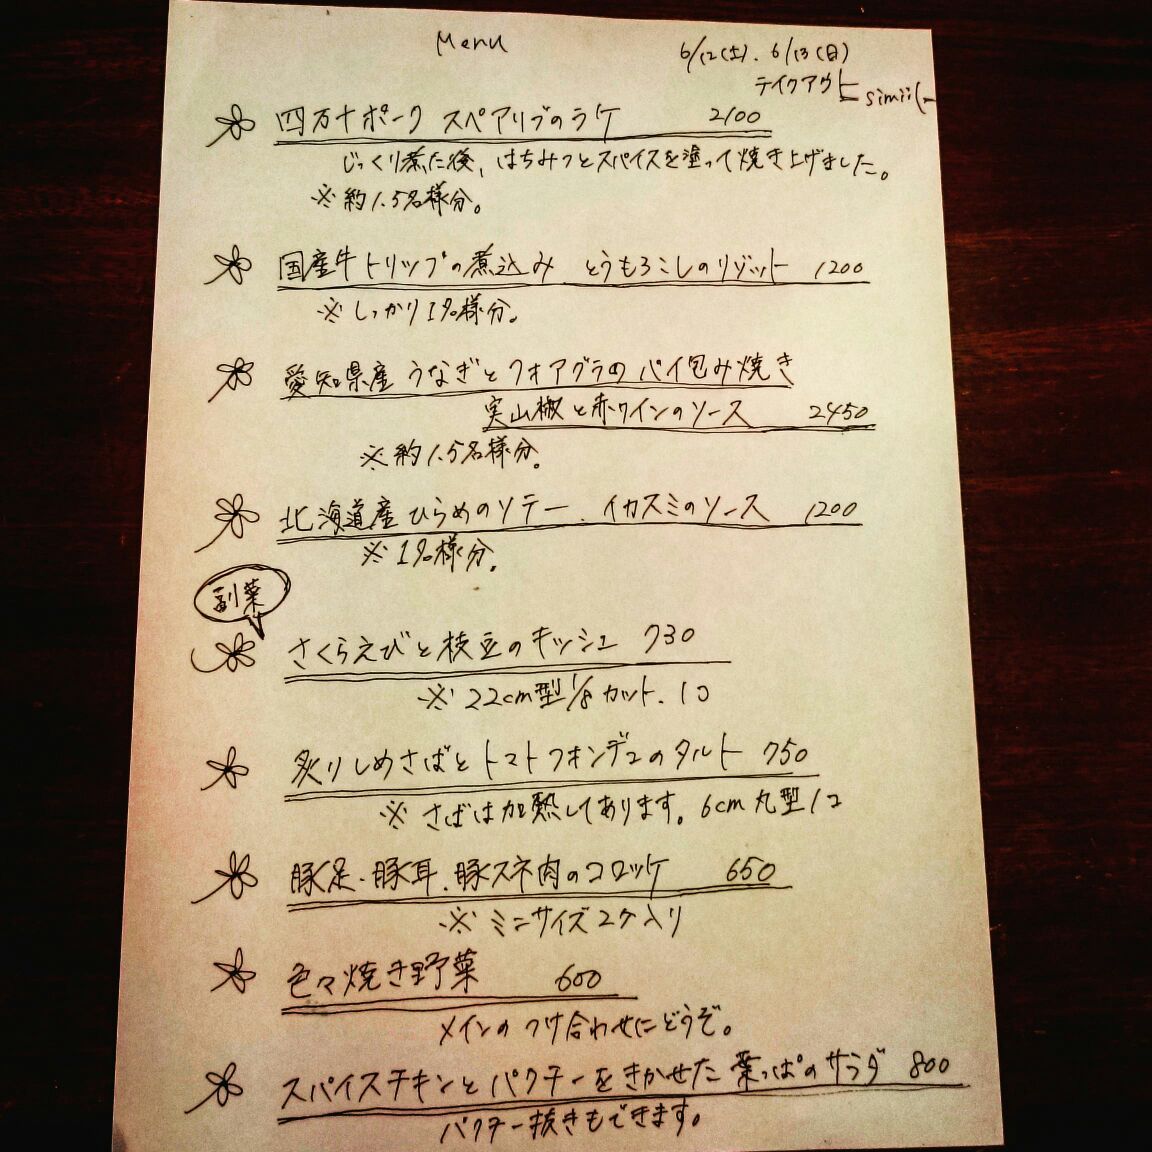 Menu
6/12(土). 6/13(日)
テイクアウト
四万十ポーク スペアリブのラケ 2100
じっくり煮た後、はちみつとスパイスを塗って焼き上げました。
※約1.5名様分。
国産牛トリップの煮込み とうもろこしのリゾット 1200
※しっかり1名様分。
愛知県産 うなぎとフォアグラのパイ包み焼き
実山椒と赤ワインのソース 2450
※約1.5名様分。
北海道産ひらめのソテー. イカスミのソース 1200
※1名様分。
副菜
さくらえびと枝豆のキッシュ 730
※22cm型1/8カット. 1コ
炙りしめさばとトマトフォンデュのタルト 750
※さばは加熱してあります。6cm丸型1コ
豚足・豚耳.豚スネ肉のコロッケ 650
※ミニサイズ2ケ入り
色々焼き野菜 600
メインのつけ合わせにどうぞ。
スパイスチキンとパクチーをきかせた葉っぱのサラダ 800
パクチー抜きもできます。